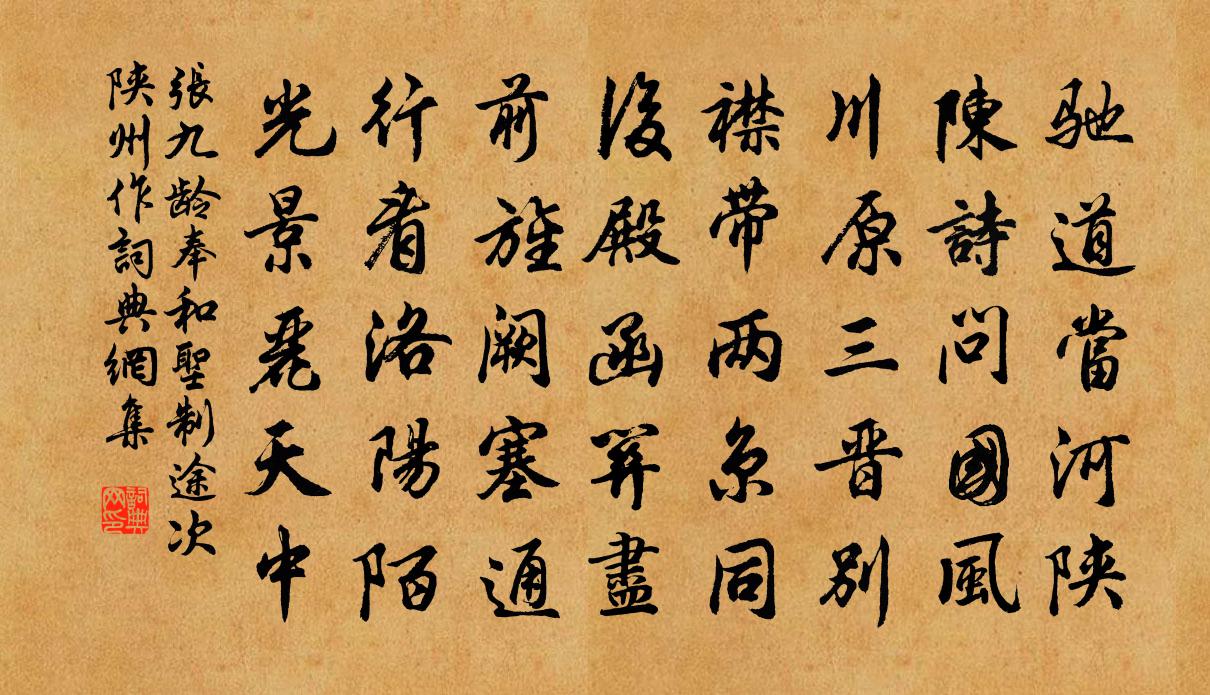 馳道當河陝
陳詩問國風
川原三晋別
襟带两京同
後殿函關盡
前旌闕塞通
行看洛陽陌
光景麗天中
張九龄奉和聖制途次
陝州作詞典網集
詞典网印